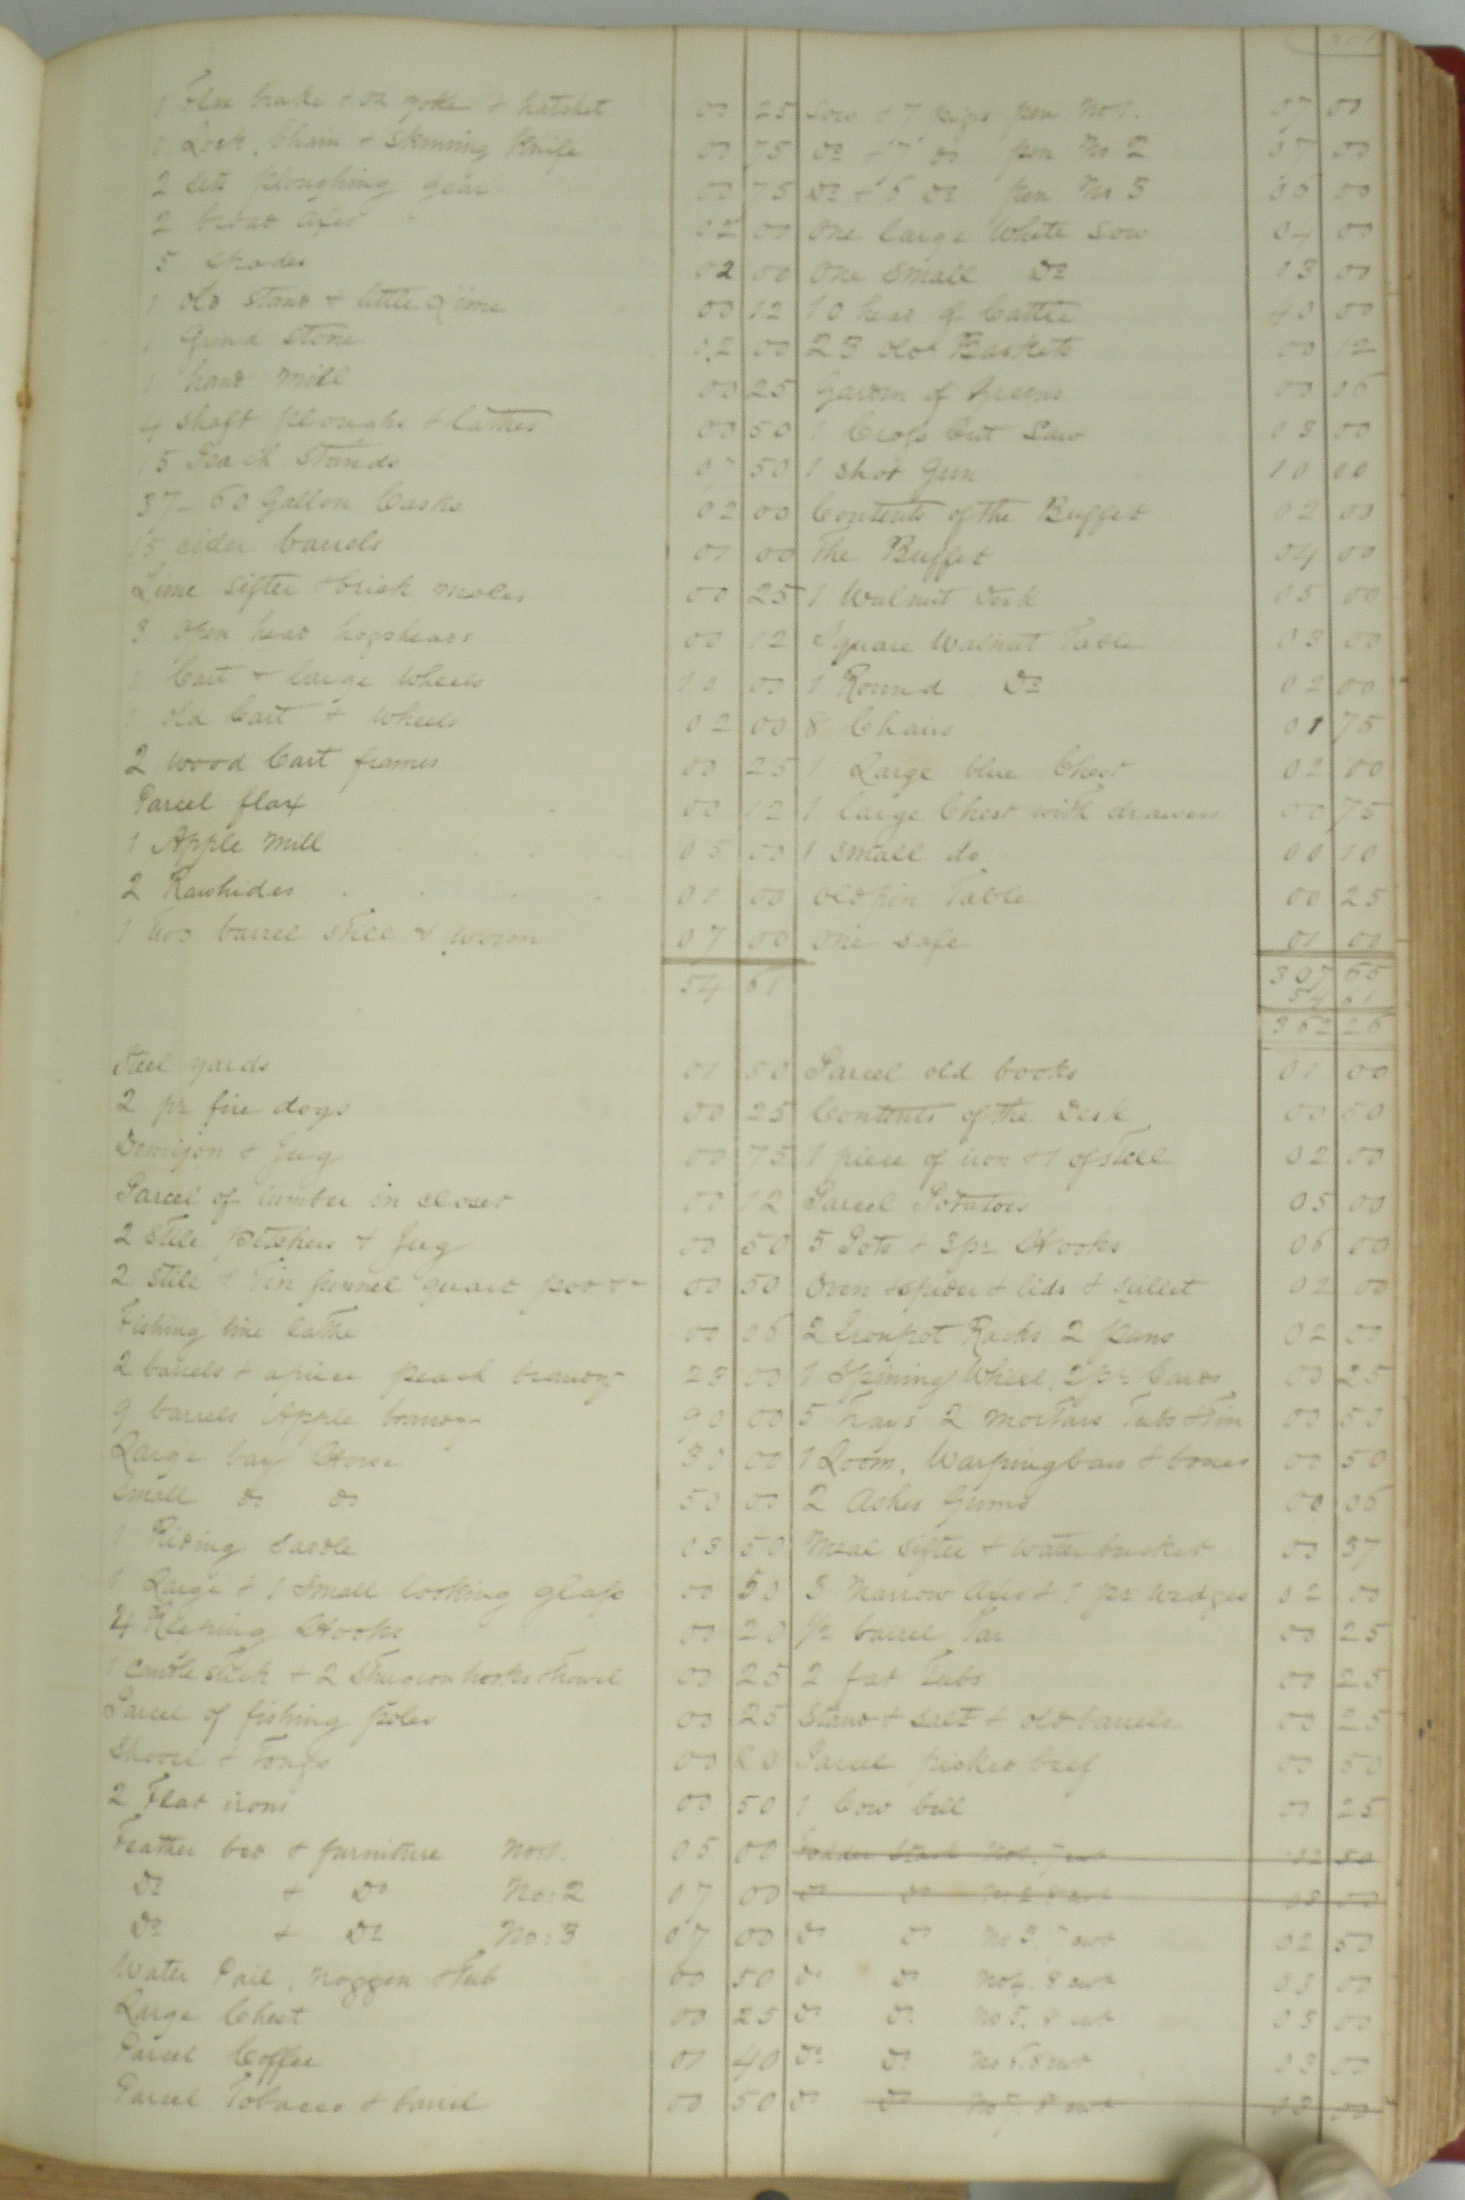 1 Flax brake & ox yoke & hatchet 00 25 Sow & 7 pigs pen No 1. 07 00
1 Lock, Chain & Skinning Knife 00 75 Do & 7 do pen No 2 07 00
2 sets ploughing gear 00 75 Do & 5 Do pen No 3 00
2 broad axes 02 00 One large White Sow 04 00
5 spades 02 00 One small Do 03 00
1 old stand & little Lime 00 12 10 head of Cattle 40 00
1 Grind stone 02 00 23 old Baskets 00 12
1 hand mill 00 25 Garden of Greens 00 06
4 shaft ploughs & 00 50 1 Cross Cut Saw 03 00
15 Peach Stands 07 50 1 shot Gun 10 00
37 - 60 Gallon Casks 02 00 Contents of the Buffet 02 00
15 cider barrels 01 00 The Buffet 04 00
Lime sifter & brick moles 00 25 1 Walnut Desk 05 00
3 open head hogsheads 00 12 Square Walnut Table 03 00
1 Cart & large Wheels 10 00 1 Round Do 02 00
1 old Cart & Wheels 02 00 8 Chairs 01 75
2 wood Cart frames 00 25 1 Large blue Chest 02 00
Parcel flax 00 12 1 large Chest with drawers 00 75
1 Apple mill 05 00 1 small do 00 10
2 Rawhides 01 00 old pin Table 00 25
1 two barrel still & worm 07 00 one safe 01 00
54 61 307 65
54 61
362 26
Steel yards 01 50 Parcel old books 01 00
2 pr fire dogs 00 25 Contents of the Desk 00 50
Demijon & Jug 00 75 1 piece of iron & 1 of steel 02 00
Parcel of lumber in closet 00 12 Parcel Potatoes 05 00
2 Still pitchers & Jug 00 50 5 Pots & 3 pr Hooks 06 00
2 Still & Tin funnel quart pot &c 00 50 Oven & spider & lids & skillet 02 00
Fishing line lathe 00 06 2 Ironpot Racks 2 pans 02 00
2 barrels & apiece peach brandy 23 00 1 Spining Wheel, 2 pr Cards 00 25
9 barrels Apple brandy 90 00 5 Trays 2 mortars Tubs & Tin 00 50
Large bay Horse 30 00 1 Loom, Warpingbars & boxes 00 50
Small do do 50 00 2 Ashes Gums 00 06
1 Riding Saddle 03 50 Meal sifter & water bucket 00 37
1 Large & 1 Small looking glass 00 50 3 Narrow Axes & 1 pr wedges 02 00
4 Reeping Hooks 00 20 1/2 barrel Tar 00 25
1 candle stick & 2 Sturgeon hooks & 00 25 2 fat Tubs 00 25
Parcel of fishing poles 00 25 Stand & salt & old barrels 00 25
Shovel & Tongs 00 Parcel pickled beef 00 50
2 Flat irons 00 50 1 Cow bell 00 25
Feather bed & furniture No 1. 05 00 Fodder Stack No 1. 7 cwt 02 50
Do & Do No: 2 07 00 do do No 2. 8 cwt 03 00
Do & Do No: 3 07 00 do do No 3. 7 cwt 02 50
Water Pail, noggen & Tub 00 50 do do No 4. 8 cwt 03 00
Large Chest 00 25 do do No 5. 8 cwt 03 00
Parcel Coffee 01 40 do do No 6. 8 cwt 03 00
Parcel Tobacco & barrel 00 50 do do No 7. 8 cwt 03 00